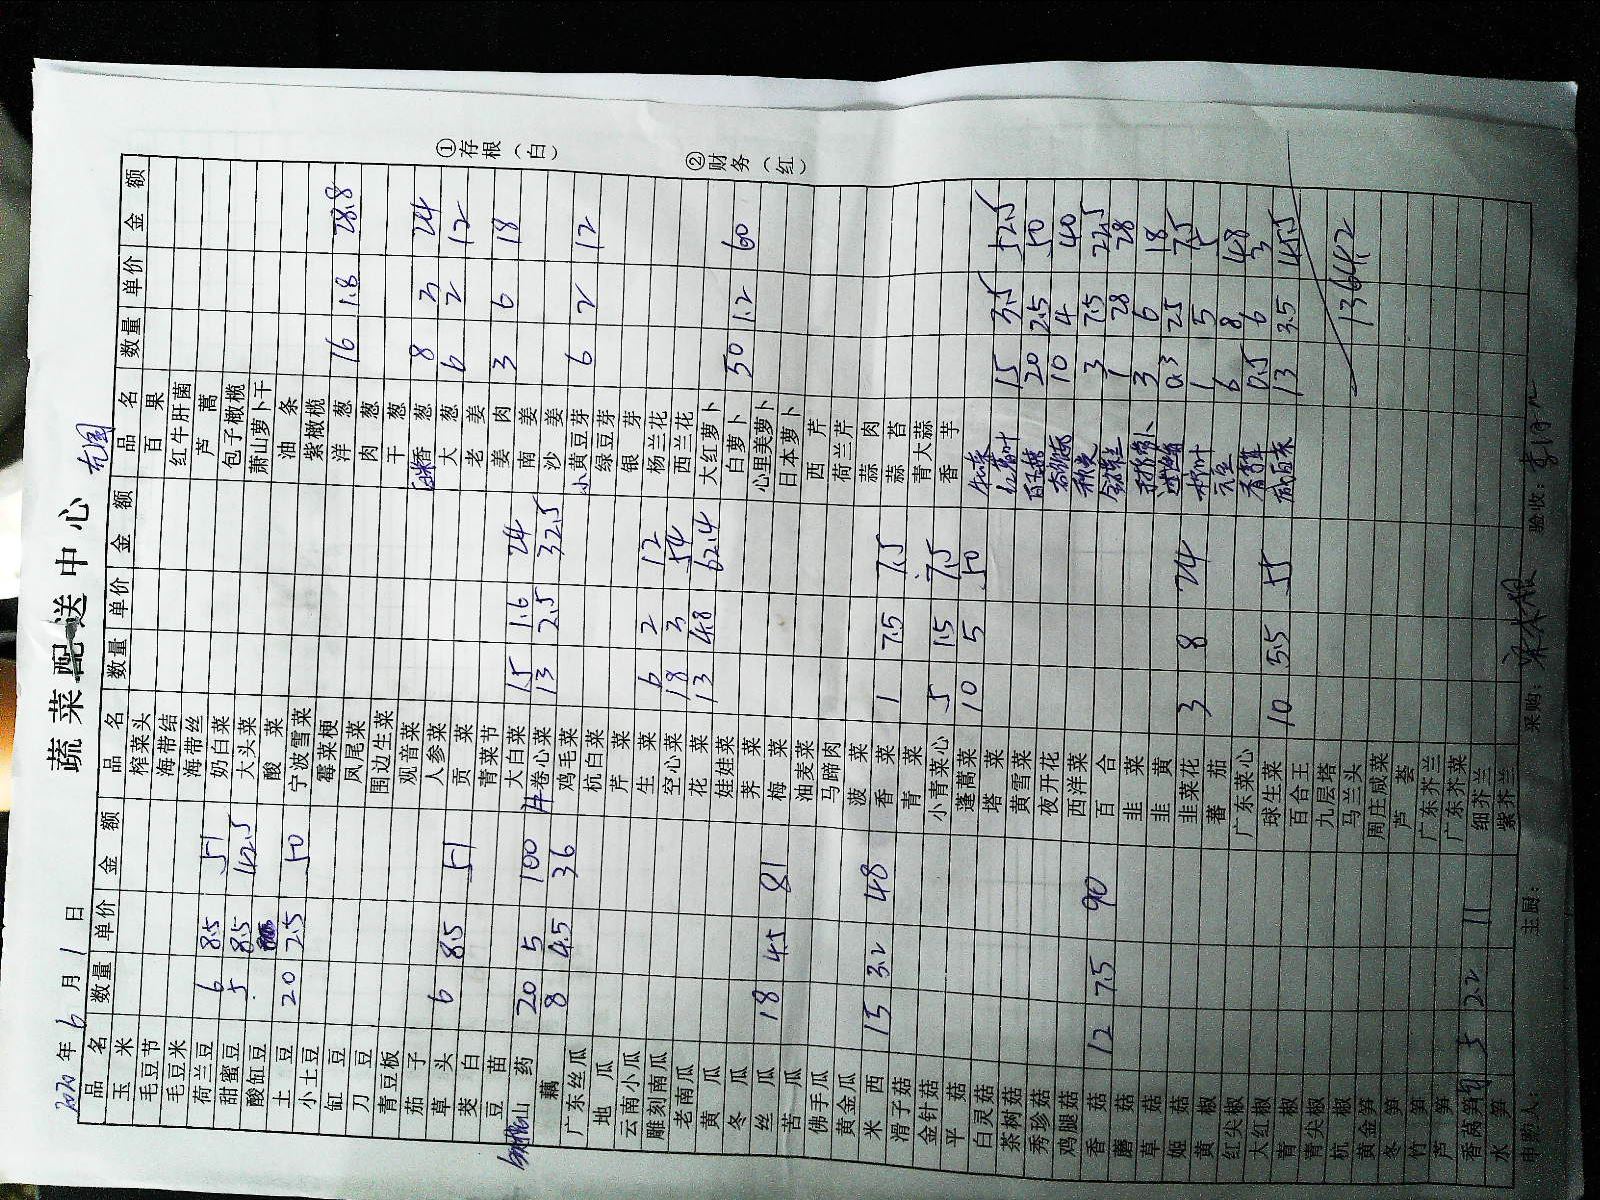 蔬菜配送中心
2020年6月1日
品名 数量 单价 金额 品名 数量 单价 金额 品名 数量 单价 金额
玉米
毛豆节
毛豆米
荷兰豆 6 8.5 51
甜蜜豆 5 8.5 42.5
酸缸豆
土豆 20 2.5 50
小土豆
缸豆
刀豆
青豆板
茄子
草头 6 8.5 51
茭白
豆苗
山药 20 5 100
藕 8 4.5 36
广东丝瓜
地瓜
云南小瓜
雕刻南瓜
老南瓜
黄瓜
冬瓜
丝瓜 18 4.5 81
苦瓜
佛手瓜
黄金瓜
米西 15 3.2 48
滑子菇
金针菇
平菇
白灵菇
茶树菇
秀珍菇
鸡腿菇
香菇 12 7.5 90
蘑菇
草菇
姬菇
黄椒
红尖椒
大红椒
青椒
青尖椒
杭椒
黄金笋
冬笋
竹笋
芦笋
香莴笋 5 2.2 11
水笋
榨菜头
海带结
海带丝
奶白菜
大头菜
酸菜
宁波雪菜
霉菜梗
凤尾菜
围边生菜
观音菜
人参菜
贡菜
青菜节
大白菜 15 1.6 24
卷心菜 13 2.5 32.5
鸡毛菜
杭白菜
芹菜
生菜 6 2 12
空心菜 18 3 54
花菜 13 4.8 62.4
娃娃菜
荠菜
梅菜
油麦菜
马蹄肉
菠菜
香菜 1 7.5 7.5
青菜
小青菜心 5 1.5 7.5
蓬蒿菜 10 5 50
塔菜
黄雪菜
夜开花
西洋菜
百合
韭菜
韭黄
韭菜花 3 8 24
蕃茄
广东菜心
球生菜 10 5.5 55
百合王
九层塔
马兰头
周庄咸菜
芦荟
广东芥兰
广东芥菜
细芥兰
紫芥兰
百果
红牛肝菌
芦蒿
包子橄榄
萧山萝卜干
油条
紫橄榄
洋葱 16 1.8 28.8
肉葱
干葱
香葱 8 3 24
大葱 6 2 12
老姜
姜肉 3 6 18
南姜
沙姜
小黄豆芽 6 2 12
绿豆芽
银芽
杨兰花
西兰花
大红萝卜
白萝卜 50 1.2 60
心里美萝卜
日本萝卜
西芹
荷兰芹
蒜肉
蒜苔
青大蒜
香芋
15 3.5 52.5
20 2.5 50
10 4 40
3 7.5 22.5
1 28 28
3 6 18
0.3 25 7.5
1 5 5
6 8 48
0.5 6 3
13 3.5 45.5
1364.2
①存根(白)
②财务(红)
申购人: 主厨: 采购: 验收: